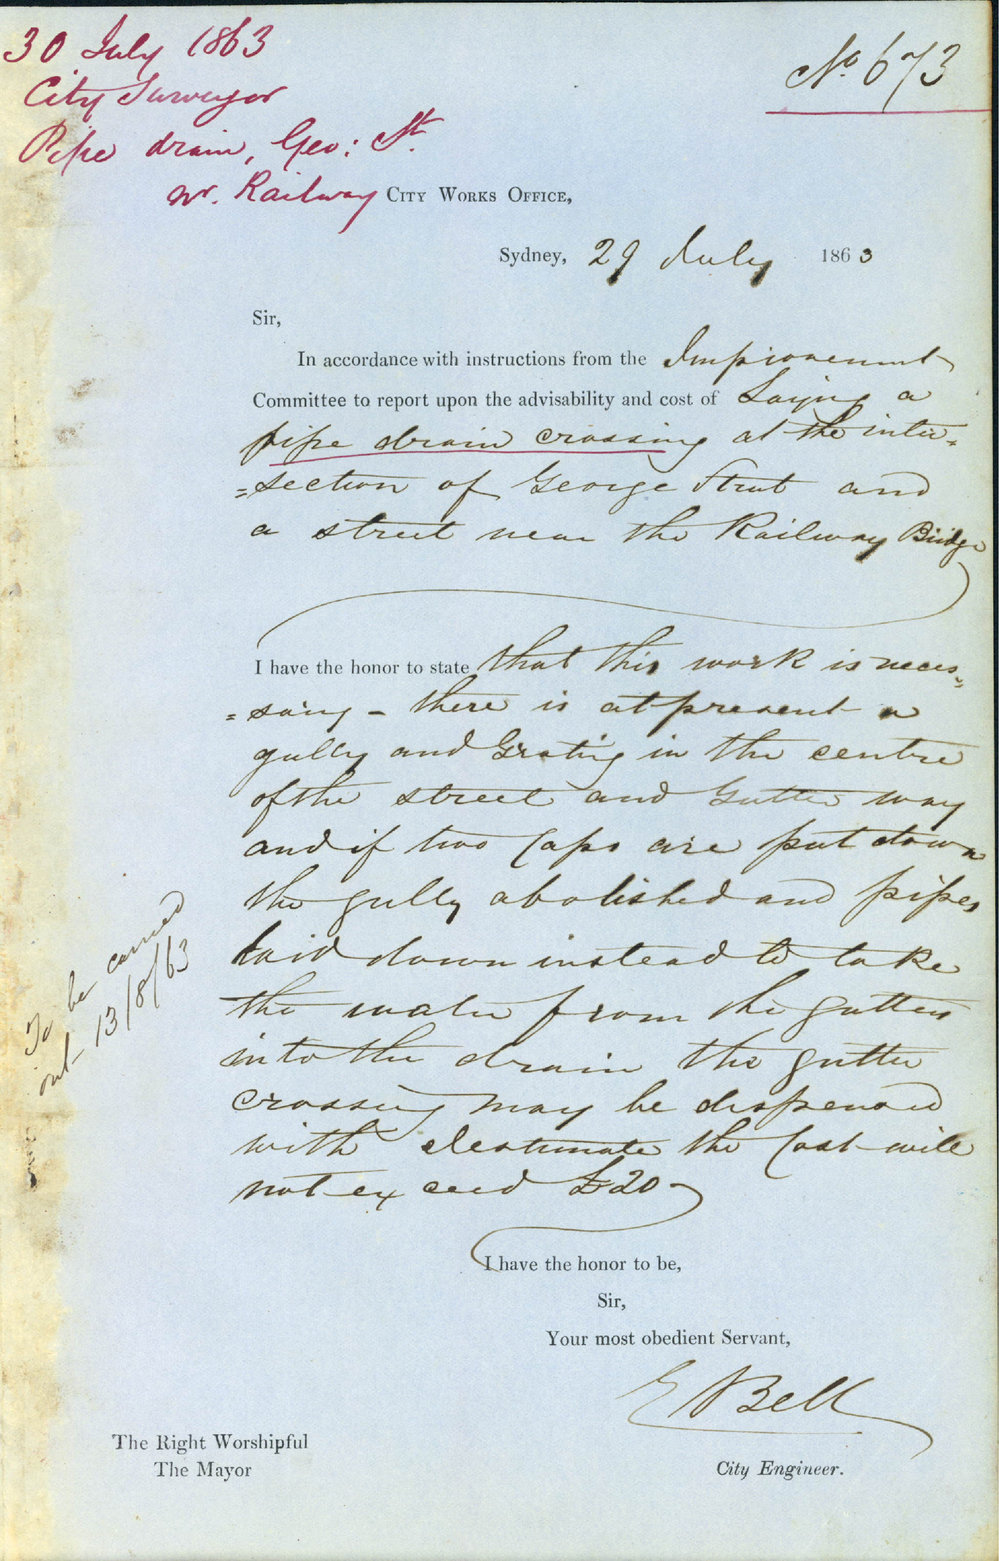 30 July 1863
City Surveyor
Pipe drain, Geo: St.
nr. Railway
No. 673
CITY WORKS OFFICE,
Sydney, 29 July 1863
Sir,
In accordance with instructions from the Improvement
Committee to report upon the advisability and cost of Laying a
pipe drain crossing at the inter=
=section of George Street and
a street near the Railway Bridge
I have the honor to state that this work is neces=
=sary - there is at present a
gully and Grating in the centre
of the street and Gutter way
and if two Caps are put down
the gully abolished and pipes
laid down instead to take
the water from the gutters
into the drain the gutter
crossing may be dispensed
with I estimate the Cost will
not exceed £20-
To be carried
out - 13/8/63
I have the honor to be,
Sir,
Your most obedient Servant,
E Bell
The Right Worshipful
The Mayor
City Engineer.